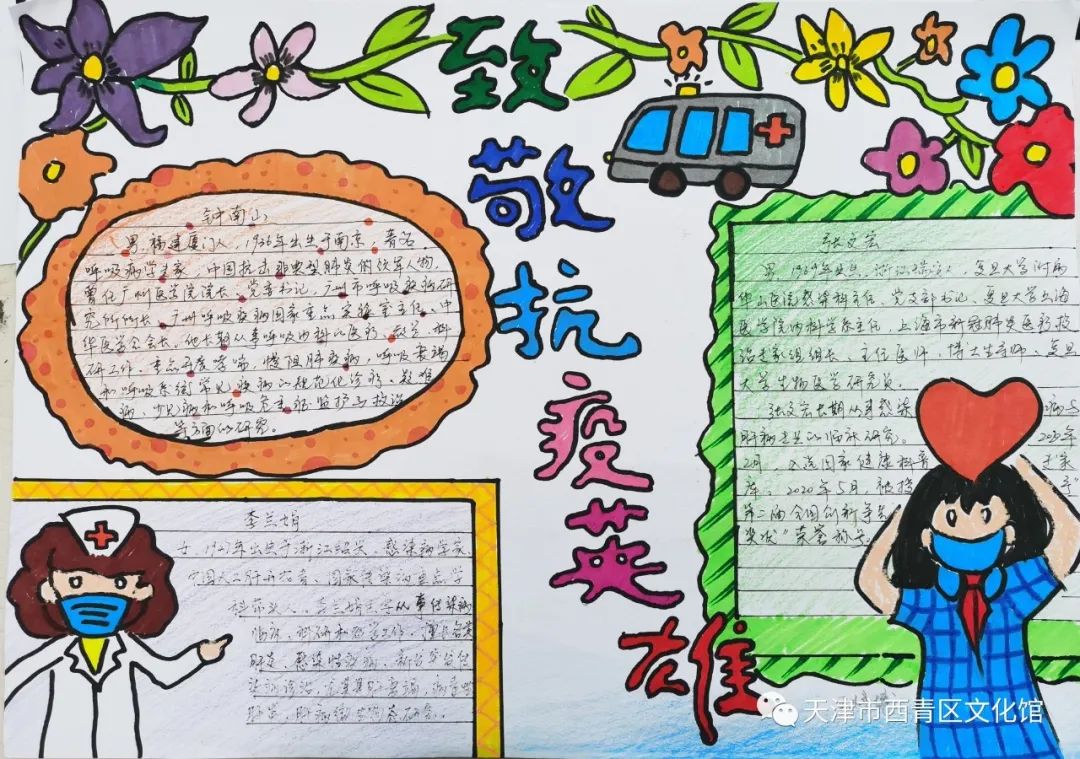 致敬抗疫英雄
钟南山
男,福建厦门人,1936年出生于南京,著名
呼吸病学专家,中国抗击非典型肺炎的领军人物,
曾任广州医学院院长、党委书记,广州市呼吸疾病研
究所所长、广州呼吸疾病国家重点实验室主任、中
华医学会会长。他长期从事呼吸内科的医疗、教学、科
研工作。重点开展哮喘,慢阻肺疾病,呼吸衰竭
和呼吸系统常见疾病的规范化诊疗、疑难
病、少见病和呼吸危重症监护与救治
等方面的研究。
李兰娟
女,1947年出生于浙江绍兴,感染病学家,
中国人工肝开拓者、国家传染病重点学
科带头人。李兰娟
从事传染病
临床、科研和教学工作,擅长各类
肝炎、感染性疾病、新发突发传
染病诊治
肝病微生态研究。
张文宏
男,1969年出生,浙江瑞安人,复旦大学附属
华山医院感染科主任、党支部书记、复旦大学上海
医学院内科学系主任,上海市新冠肺炎医疗救
治专家组组长、主任医师、博士生导师、复旦
大学生物医学研究员。
张文宏长期从事感染
病与
肝病
的临床研究。
2020年
2月,入选国家健康科普
专家
库。2020年5月,被授
予
第二届全国创新争先
奖状"荣誉称号。
天津市西青区文化馆